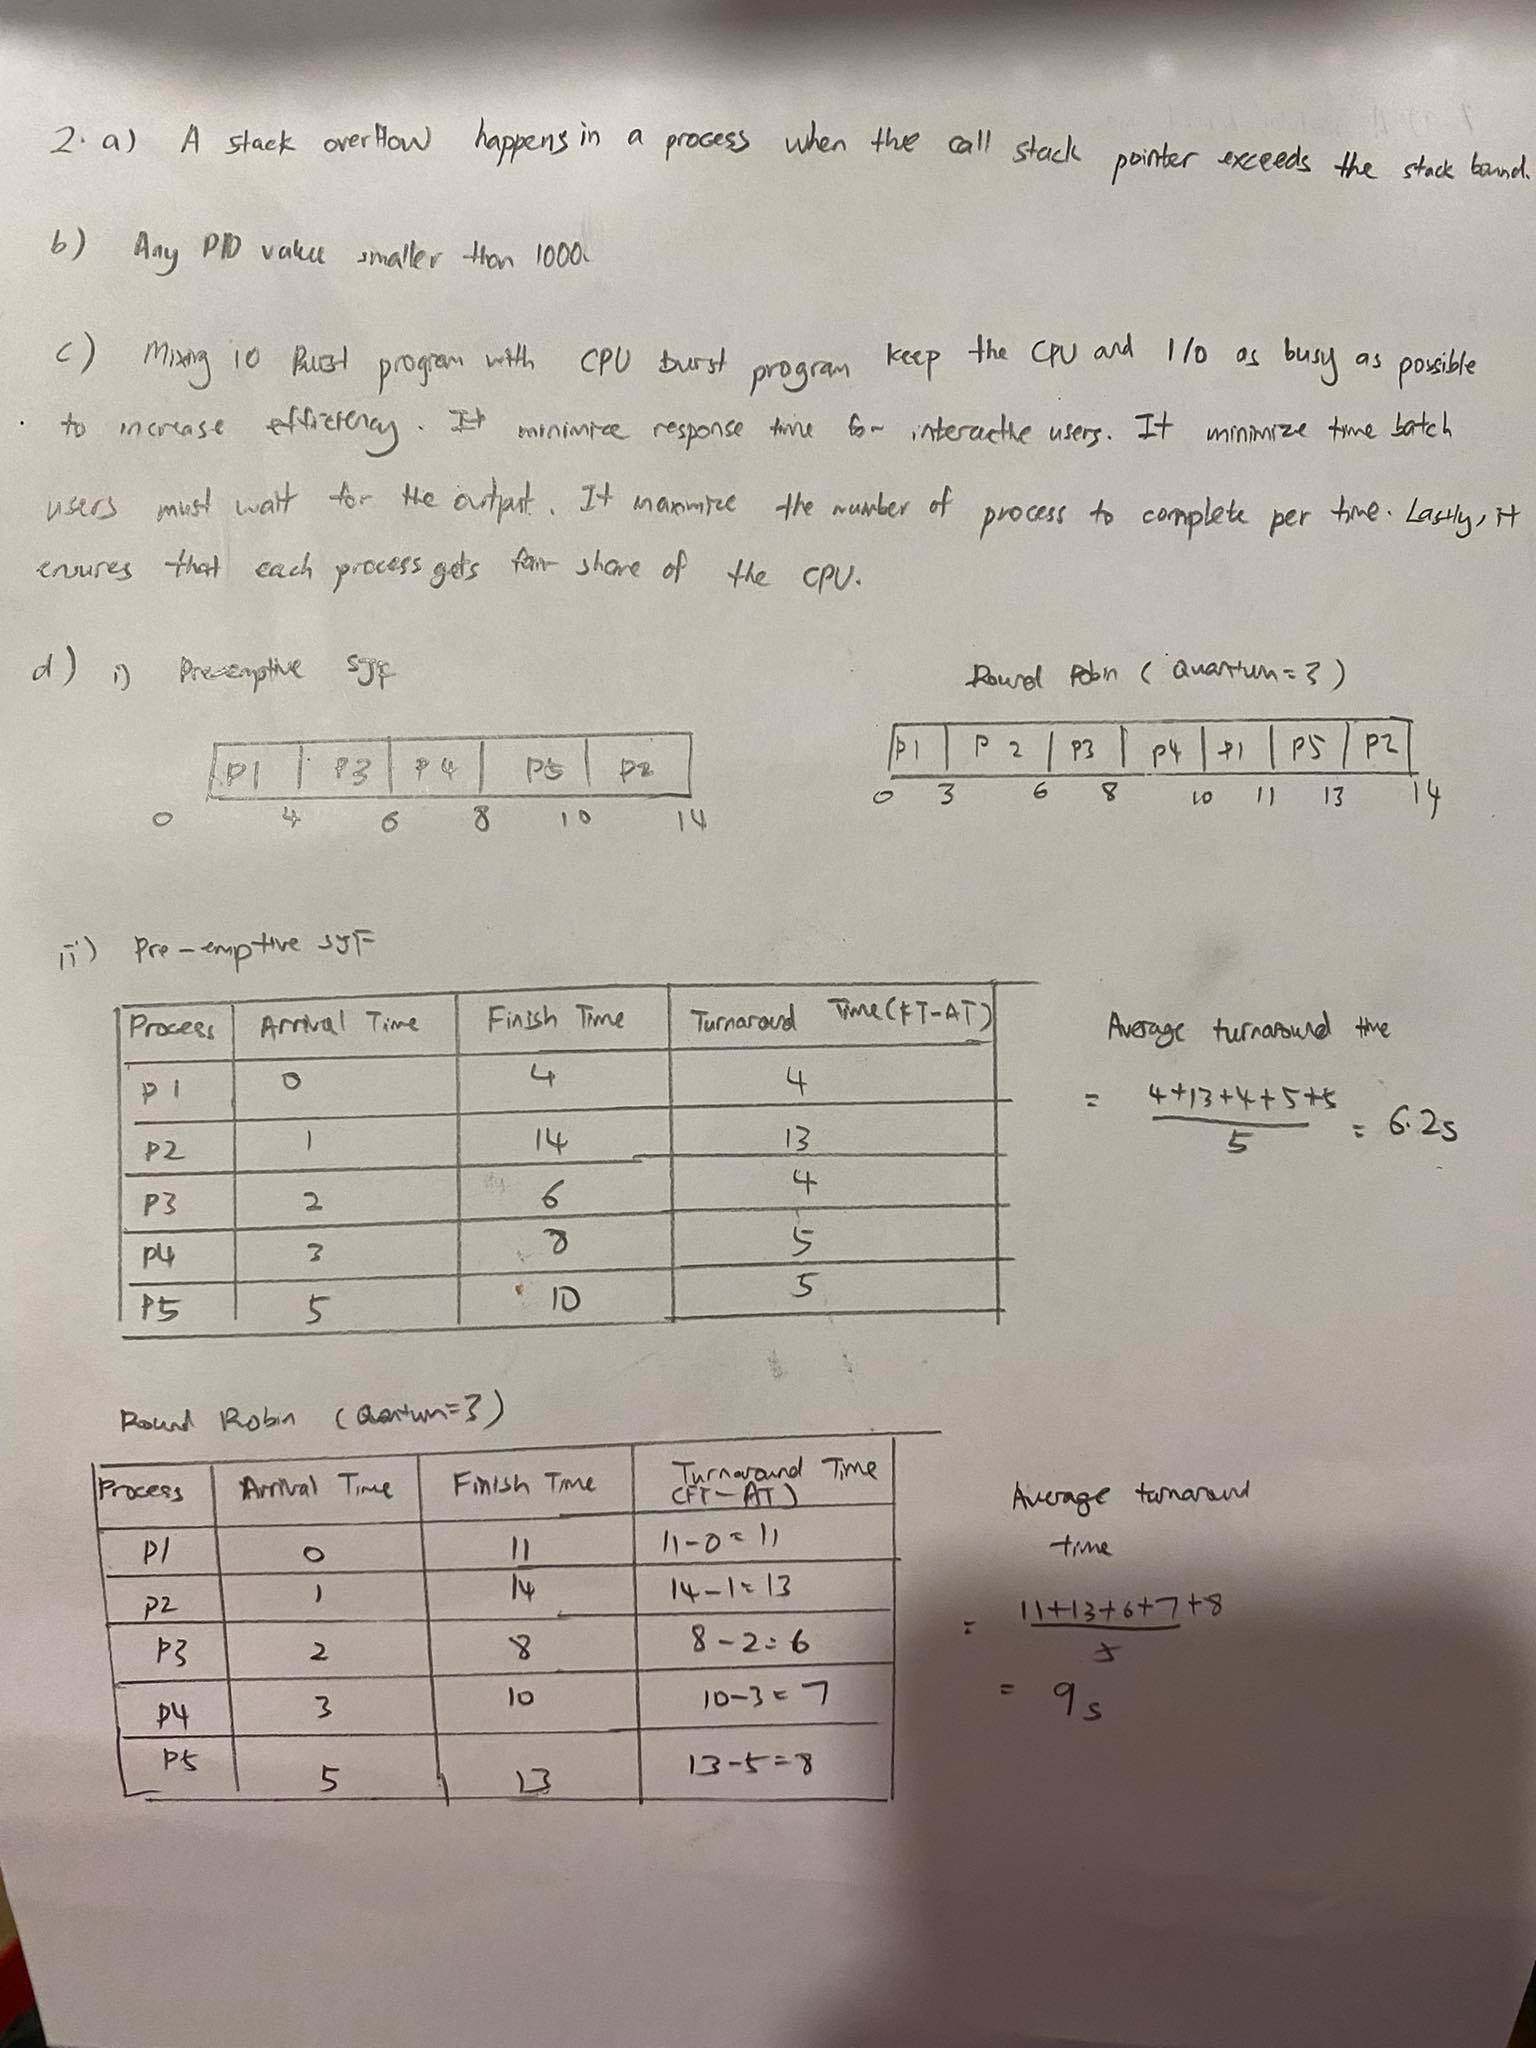 2. a) A stack overflow happens in a process when the call stack pointer exceeds the stack bound.
b) Any PID value smaller than 1000.
c) Mixing io Burst program with CPU burst program keep the CPU and I/O as busy as possible
to increase efficiency. It minimize response time for interactive users. It minimize time batch
users must wait for the output. It maximize the number of process to complete per time. Lastly, it
ensures that each process gets fair share of the CPU.
d) i) Pre-emptive SJF Round Robin (Quantum=3)
P1 P3 P4 P5 P2
0 4 6 8 10 14
P1 P2 P3 P4 P1 P5 P2
0 3 6 8 10 11 13 14
ii) Pre-emptive SJF
Process Arrival Time Finish Time Turnaround Time (FT-AT)
P1 0 4 4
P2 1 14 13
P3 2 6 4
P4 3 8 5
P5 5 10 5
Average turnaround time
= 4+13+4+5+5 / 5 = 6.2s
Round Robin (Quantum=3)
Process Arrival Time Finish Time Turnaround Time
(FT-AT)
P1 0 11 11-0=11
P2 1 14 14-1=13
P3 2 8 8-2=6
P4 3 10 10-3=7
P5 5 13 13-5=8
Average turnaround
time
= 11+13+6+7+8
5
= 9s